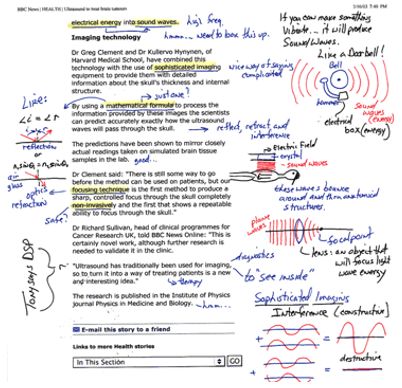 BBC News | HEALTH | Ultrasound to treat brain tumours
2/16/03 7:40 PM
electrical energy into sound waves.
high freq.
hmm... need to look this up.
Imaging technology
Dr Greg Clement and Dr Kullervo Hynynen, of
Harvard Medical School, have combined this
technology with the use of sophisticated imaging
equipment to provide them with detailed
information about the skull's thickness and internal
structure.
nice way of saying
complicated
just one?
By using a mathematical formula to process the
information provided by these images the scientists
can predict accurately exactly how the ultrasound
waves will pass through the skull.
reflect, refract and
interference
The predictions have been shown to mirror closely
actual readings taken on simulated brain tissue
samples in the lab.
good...
Dr Clement said: "There is still some way to go
before the method can be used on patients, but our
focusing technique is the first method to produce a
sharp, controlled focus through the skull completely
non-invasively and the first that shows a repeatable
ability to focus through the skull."
Dr Richard Sullivan, head of clinical programmes for
Cancer Research UK, told BBC News Online: "This is
certainly novel work, although further research is
needed to validate it in the clinic.
"Ultrasound has traditionally been used for imaging,
so to turn it into a way of treating patients is a new
and interesting idea."
therapy
The research is published in the Institute of Physics
Journal Physics in Medicine and Biology.
hmm...
E-mail this story to a friend
Links to more Health stories
In This Section
GO
Like:
reflection
or
air
glass
optics
refraction
safe?
Tony says DSP
If you can make something
Vibrate... it will produce
Sound/Waves.
Like a Doorbell!
Bell
hammer
sound
waves
(energy)
electrical
box (energy)
Electric Field
crystal
sound waves
these waves bounce
around and thru anatomical
structures.
plane
waves
focal point
lens: an object that
will focus light
wave energy
diagnostics
to "see inside"
Sophisticated Imaging
Interference (constructive)
+
=
destructive
+
=